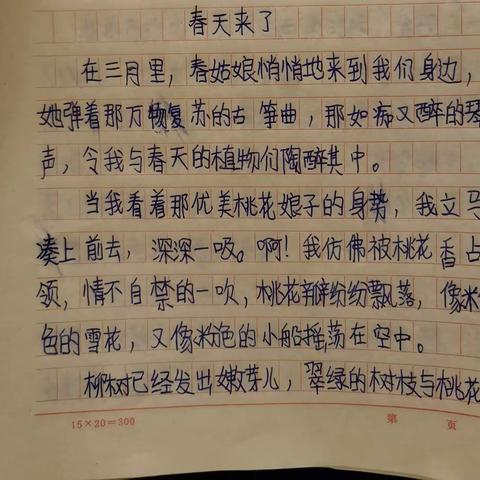 春天来了
在三月里，春姑娘悄悄地来到我们身边，
她弹着那万物复苏的古筝曲，那如痴又醉的琴
声，令我与春天的植物们陶醉其中。
当我看着那优美桃花娘子的身势，我立马
凑上前去，深深一吸。啊！我仿佛被桃花香占
领，情不自禁的一吹，桃花瓣纷纷飘落，像粉
色的雪花，又像粉色的小船摇荡在空中。
柳树已经发出嫩芽儿，翠绿的树枝与桃花
15×20=300
第 页